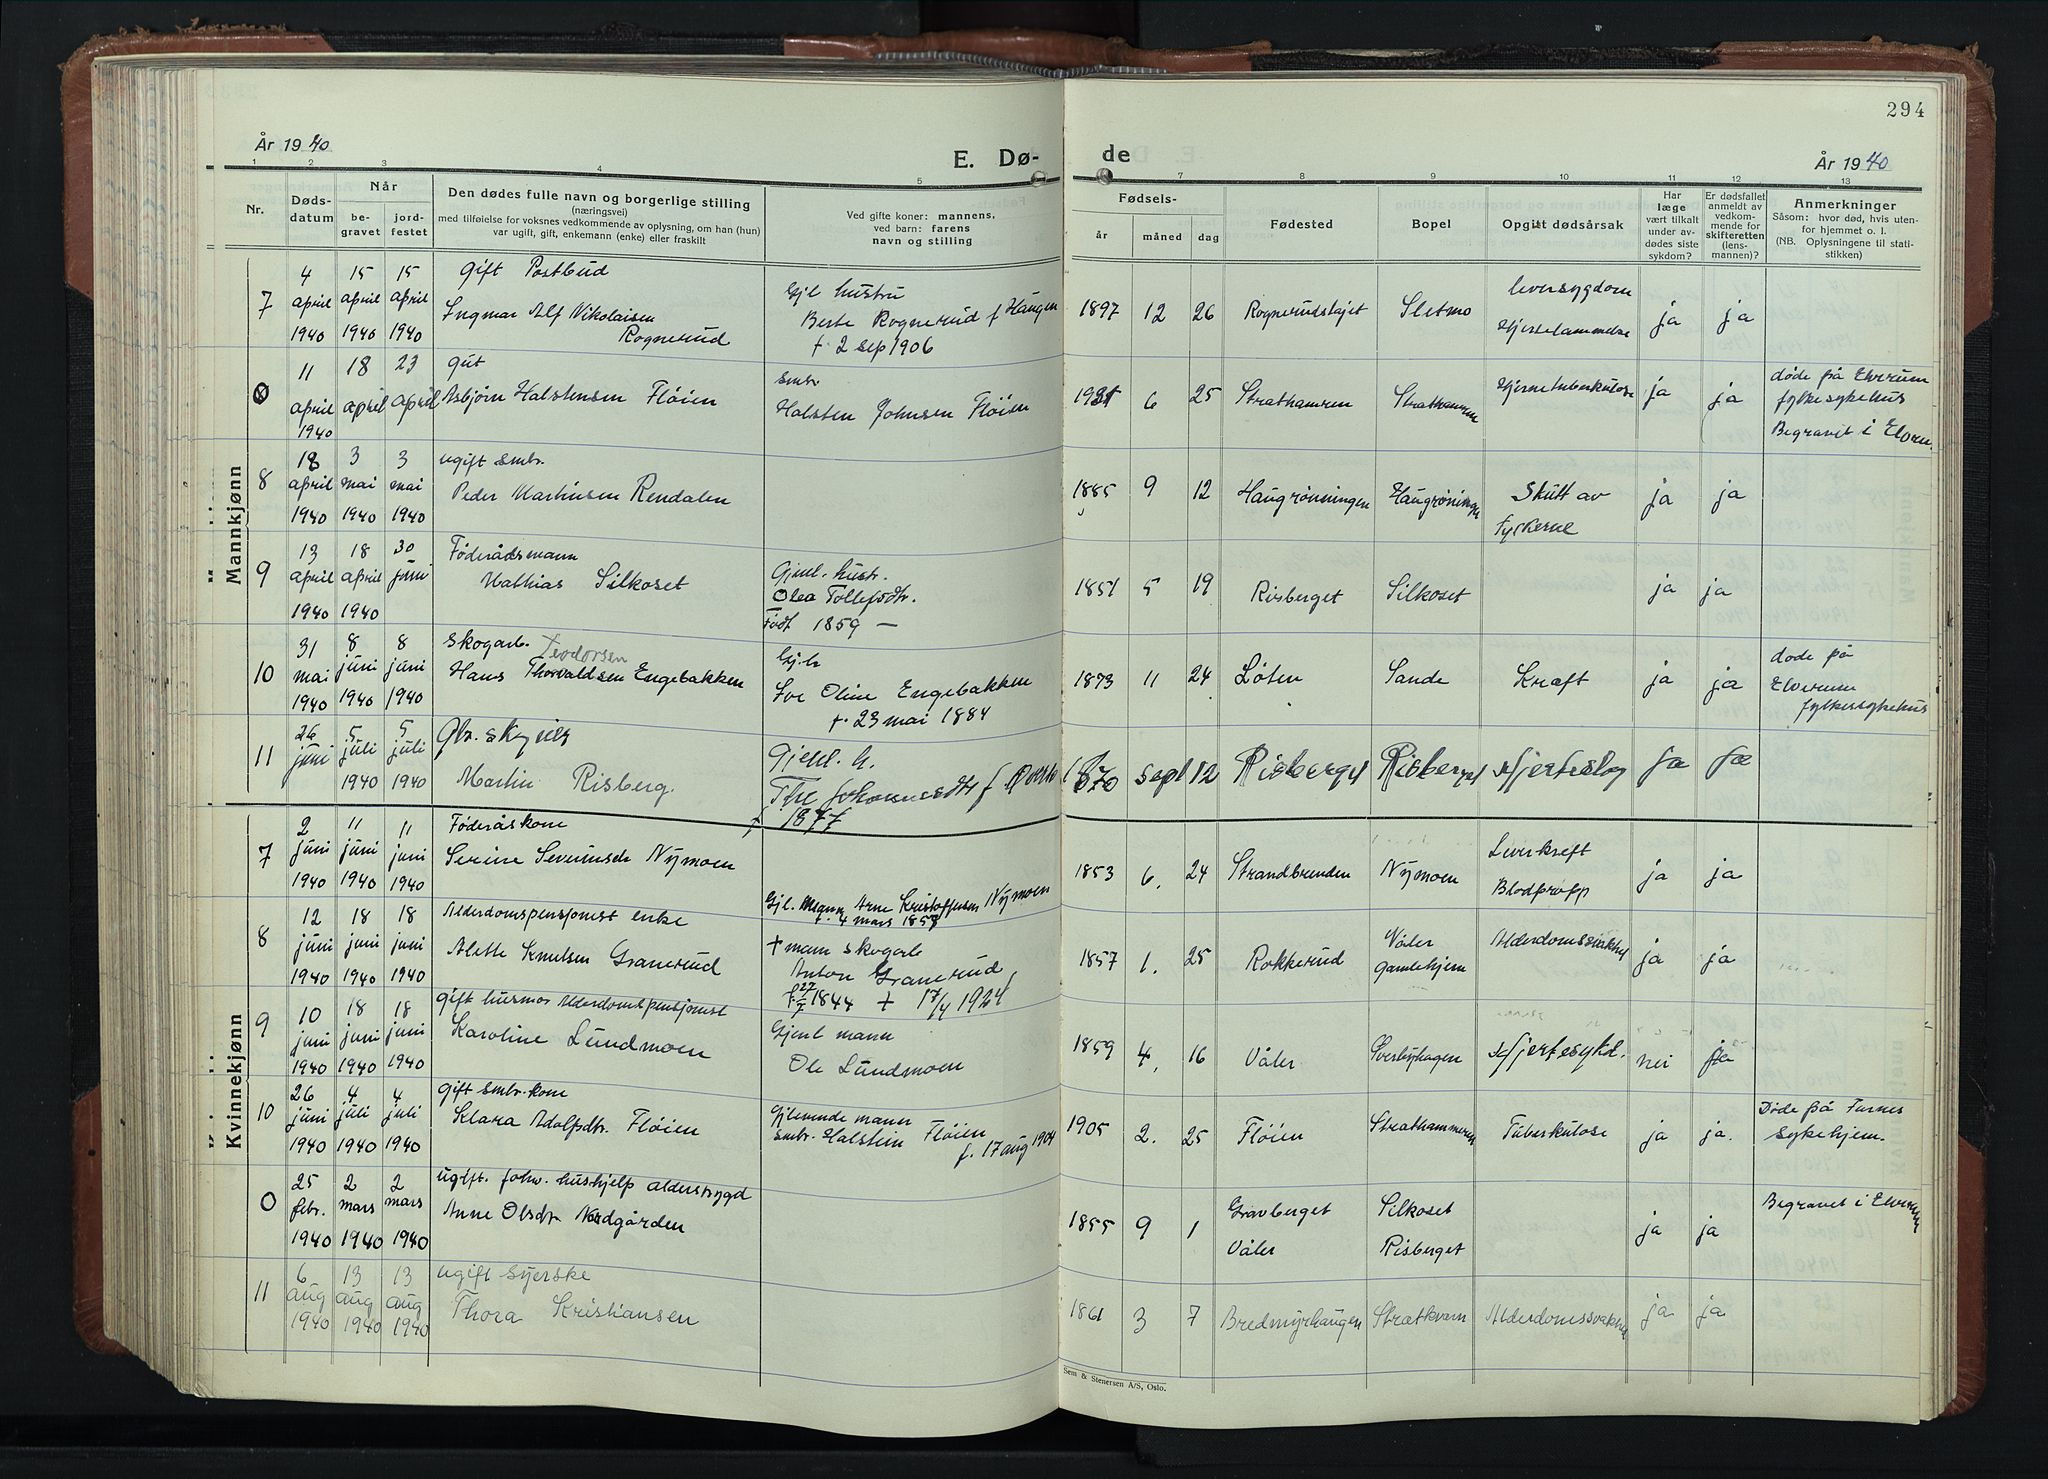 294
År 1940
E. Dø-
de
År 1940
1 2 3 4 5 7 8 9 10 11 12 13
Nr.
Døds-
datum
Når
be-
gravet
jord-
festet
Den dødes fulle navn og borgerlige stilling
(næringsvei)
med tilføielse for voksnes vedkommende av oplysning, om han (hun)
var ugift, gift, enkemann (enke) eller fraskilt
Ved gifte koner: mannens,
ved barn: farens
navn og stilling
Fødsels-
år måned dag
Fødested
Bopel
Opgitt dødsårsak
Har
læge
vært tilkalt
under av-
dødes siste
sykdom?
Er dødsfallet
anmeldt av
vedkom-
mende for
skifteretten
(lens-
mannen)?
Anmerkninger
Såsom: hvor død, hvis uten-
for hjemmet o. l.
(NB. Oplysningene til stati-
stikken)
Mannkjønn
7
4 april 1940
15 april 1940
15 april 1940
Gift Postbud
Ingmar Alf Nikolaisen
Rognerud
Gjl hustru
Berte Rognerud f Haugen
+ 2 sep 1906
1897 12 26 Rognerudstøjet Sletmo
leversygdom
Hjertelammelse
ja ja
0
11 april 1940
18 april
23 april
gut
Asbjørn Halstensen Fløien
Smbr
Halsten Johnsen Fløien
1931 6 25 Strathamren Strathamren Hjernetuberkulose ja ja
døde på Elverum
fylkesykehus
Begravet i Elverum
8
18 april 1940
3 mai 1940
3 mai 1940
ugift smbr.
Peder Martinsen Rendalen
1885 9 12 Haugrønningen Haugrønningen
Skutt av
tyskerne
ja ja
9
13 april 1940
18 april 1940
30 juni
Føderådsmann
Mathias Silkoset
Gjenl. hustr.
Olea Tollefsdtr.
Født 1859 —
1851 5 19 Risberget Silkoset ja ja
10
31 mai 1940
8 juni 1940
8 juni 1940
Skogarb. Teodorsen
Hans Thorvaldsen Engebakken
Gj.l.
Oline Engebakken
+. 23 mai 1884
1873 11 24 Løten Sande Kræft ja ja
døde på
Elverum
fylkessykehus
11
26 juni
5 juli 1940
5 juli 1940
Martin Risberg.
Gjenl. h.
Johannesdtr f
f 1877
1870 sept 12 Risberget Risberget Hjerteslag ja ja
Kvinnekjønn
7
2 juni 1940
11 juni 1940
11 juni 1940
Føderåskone
Serine Severinsdr Nymoen
Gjl. Mann Arne Kristoffersen Nymoen
f. 4 mars 1858
1853 6. 24 Strandbrenden Nymoen
Leverkreft
Blodpropp
ja ja
8
12 juni 1940
18 juni 1940
18 juni 1940
Alderdomspensjonist enke
Alette Knutsen Granerud
+ mann skogarb
Anton Granerud
f. 27/7 1844 + 17/4 1924
1857 1. 25 Rokkerud
Våler
Gamlehjem
Alderdomssvakhet ja ja
9
10 juni 1940
18 juni 1940
18 juni 1940
Gift husmor Alderdomspensjonist
Karoline Lundmoen
Gjenl mann
Ole Lundmoen
1859 4. 16 Våler Sverbyhagen Hjertesykd. nei ja
10
26 juni 1940
4 juli 1940
4 juli 1940
Gift Smbr.kone
Klara Adolfsdtr. Fløien
Gjlevende mann
Smbr. Halstein Fløien
f. 17 aug 1904
1905 2. 25 Fløien Strathammeren Tuberkulose ja ja.
Døde på Furnes
Sykehjem.
0
25 febr. 1940
2 mars 1940
2 mars 1940
ugift. forhv. hushjelp alderstrygd
Anne Olsdtr Nordgården
1855 9 1
Gravberget
Våler
Silkoset
Risberget
ja ja
Begravet i Elverum
11
6 aug 1940
13 aug 1940
13 aug 1940
ugift Syerske
Thora Kristiansen
1861 3 7 Bredmyrhaugen Strætkvern Alderdomssvakhet ja ja
Sem & Stenersen A/S, Oslo.